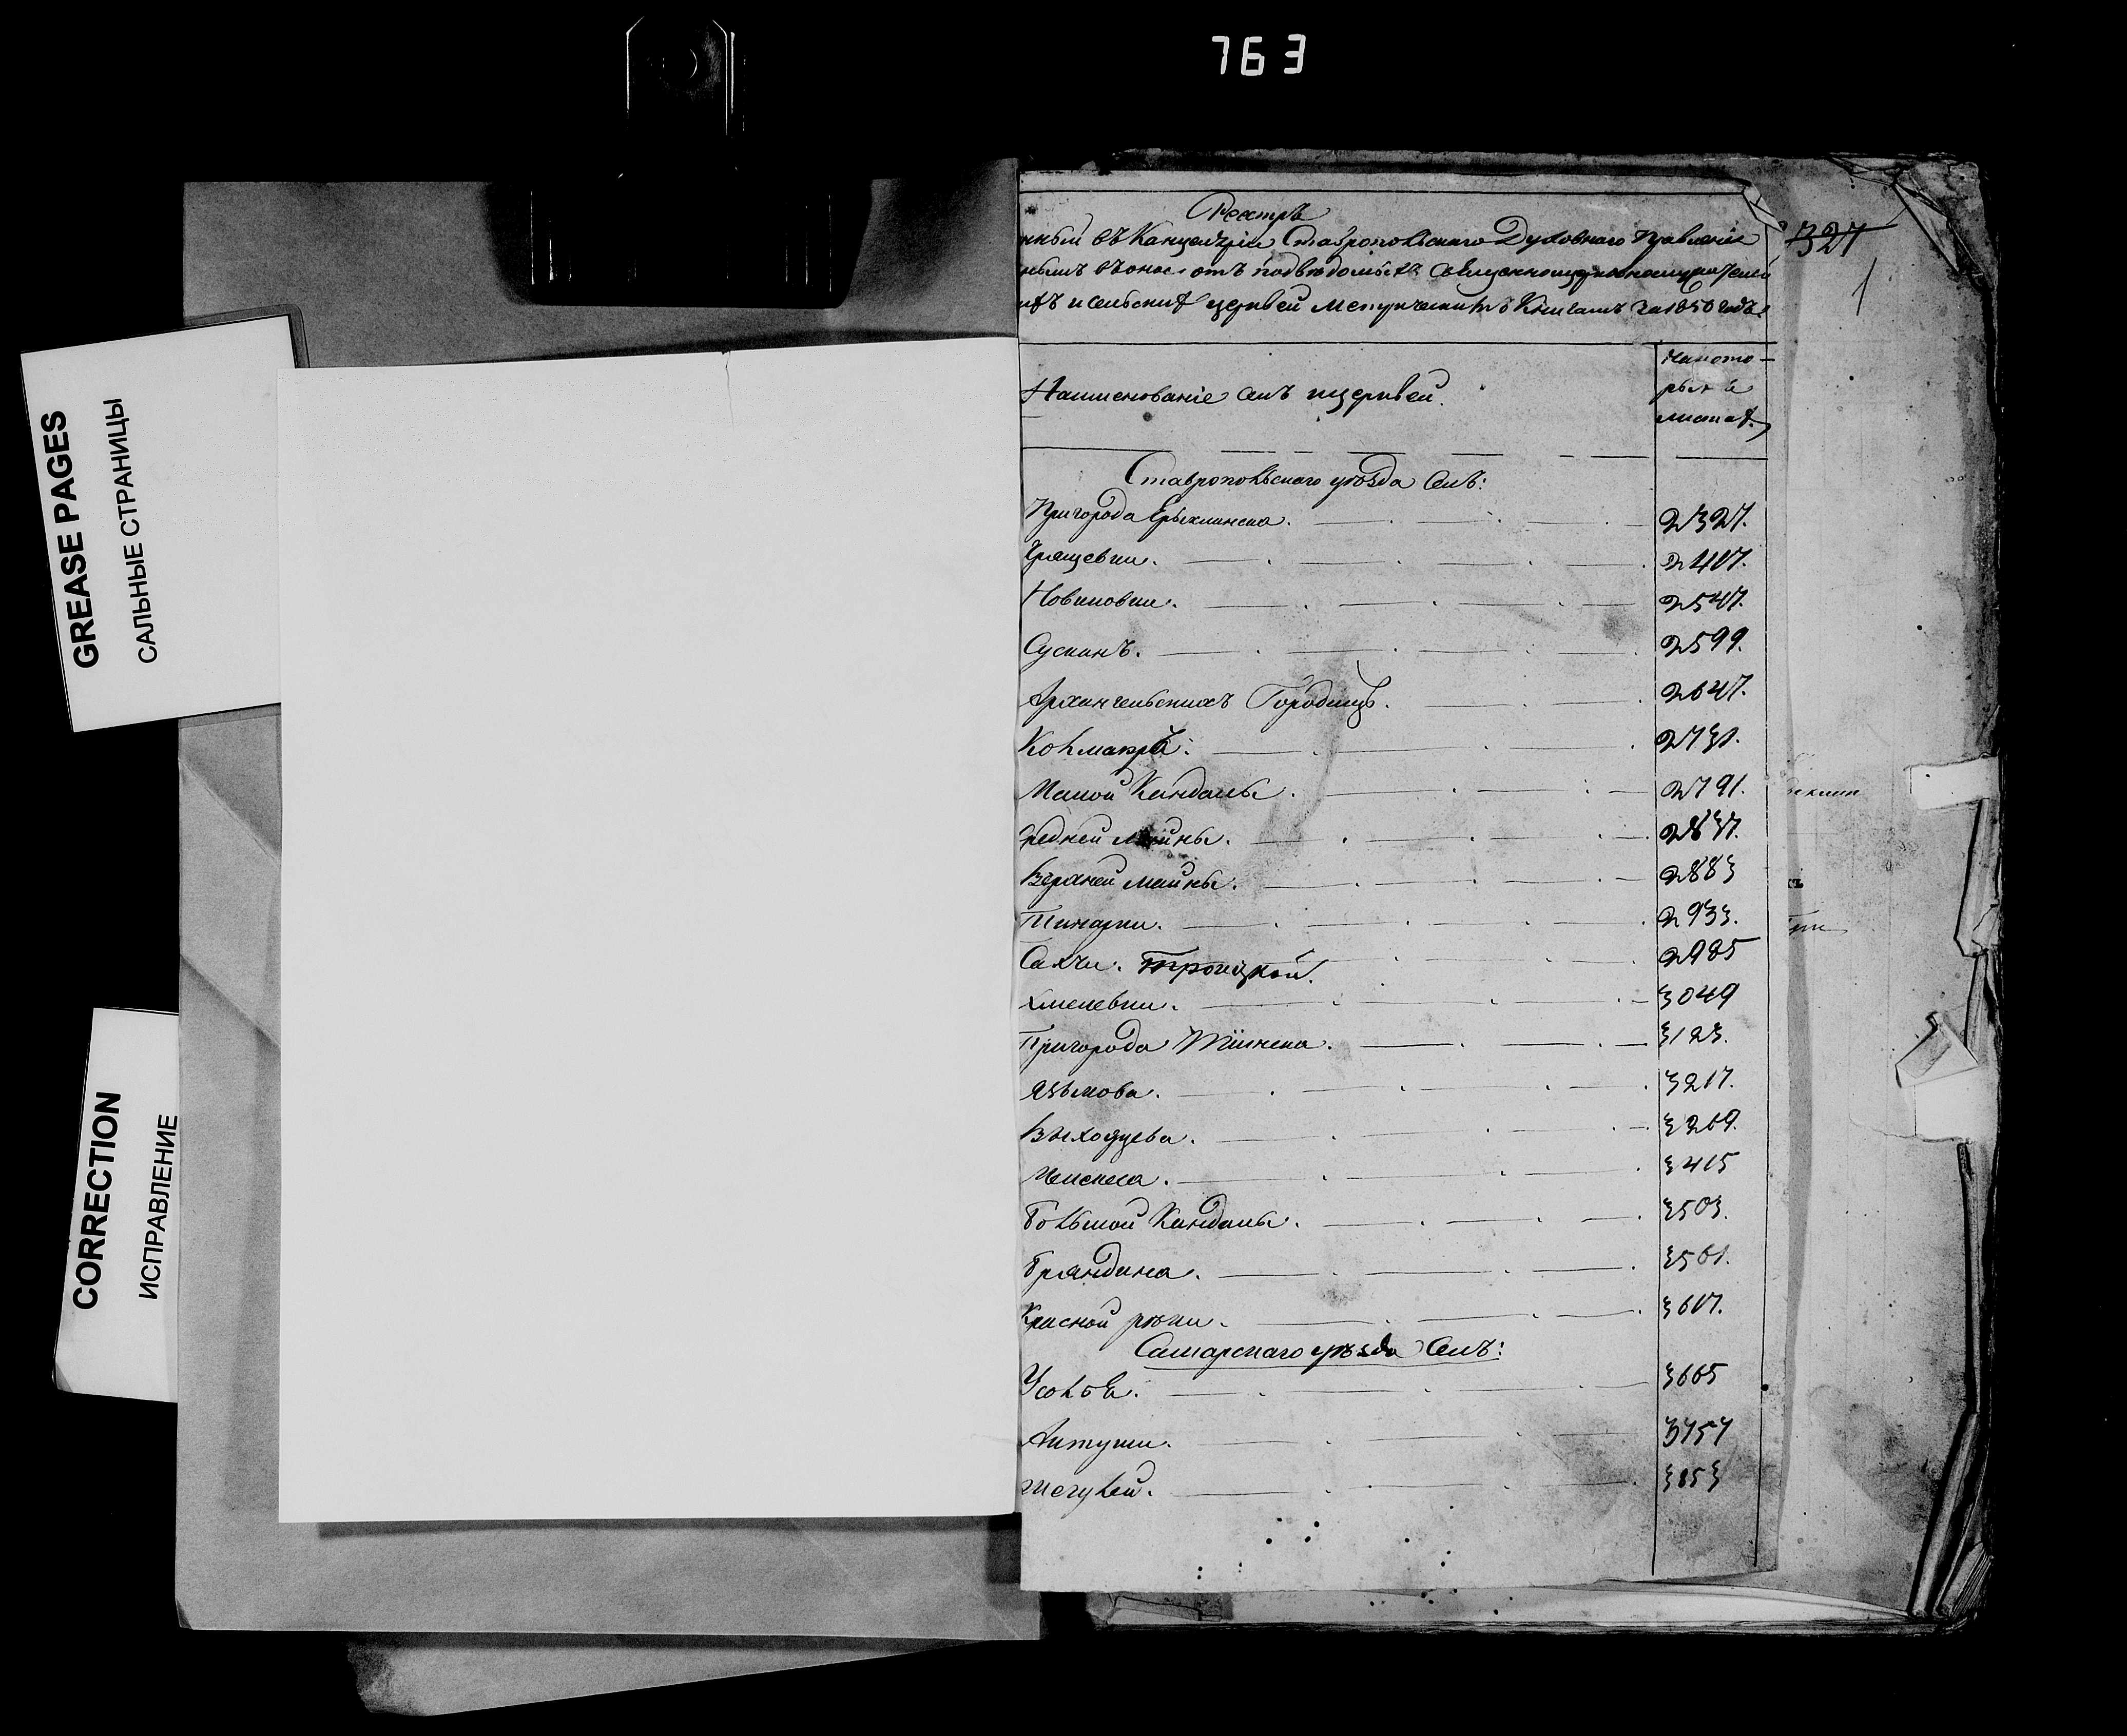 763
GREASE PAGES
САЛЬНЫЕ СТРАНИЦЫ
CORRECTION
ИСПРАВЛЕНИЕ
327
1
Реестръ
нный въ Канцеляріи Ставропольскаго Духовнаго Правленія
нымъ въ оное отъ подведомыхъ священноцерковнослужителей
ихъ и сельскихъ церквей Метрическихъ Книгамъ за 1850 годъ.
Наименованіе селъ и церквей.
На кото-
рыхъ
листахъ
Ставропольскаго уѣзда Селъ:
Пригорода Ерыклинска. 2327.
Хрящевки. 2407.
Новиковки. 2547.
Сусканъ. 2599.
Архангельскихъ Городищъ. 2647.
Колмаюръ. 2731.
Малой Кандалы. 2791.
Средней Майны. 2837.
Верхней Майны. 2883
Тинарки. 2933.
Сахчи. Троицкой. 2985
Хмелевки. 3049
Пригорода Тіинска. 3123.
Языкова. 3217.
Выходцева. 3269.
Чеискеса. 3415
Большой Кандалы. 3503.
Бряндина. 3561.
Красной рѣки. 3617.
Самарскаго уѣзда Селъ:
Усолья. 3665
Актуши. 3757
Жегулей. 3853